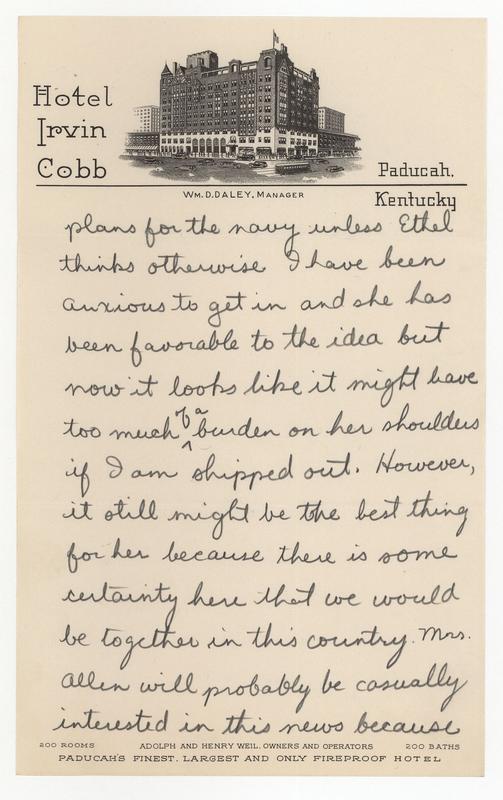 Hotel
Irvin
Cobb
Paducah,
Kentucky
WM. D. DALEY, MANAGER
plans for the navy unless Ethel
thinks otherwise I have been
anxious to get in and she has
been favorable to the idea but
now it looks like it might leave
too much of a burden on her shoulders
if I am shipped out. However,
it still might be the best thing
for her because there is some
certainty here that we would
be together in this country. Mrs.
Allen will probably be casually
interested in this news because
200 ROOMS ADOLPH AND HENRY WEIL, OWNERS AND OPERATORS 200 BATHS
PADUCAH'S FINEST, LARGEST AND ONLY FIREPROOF HOTEL